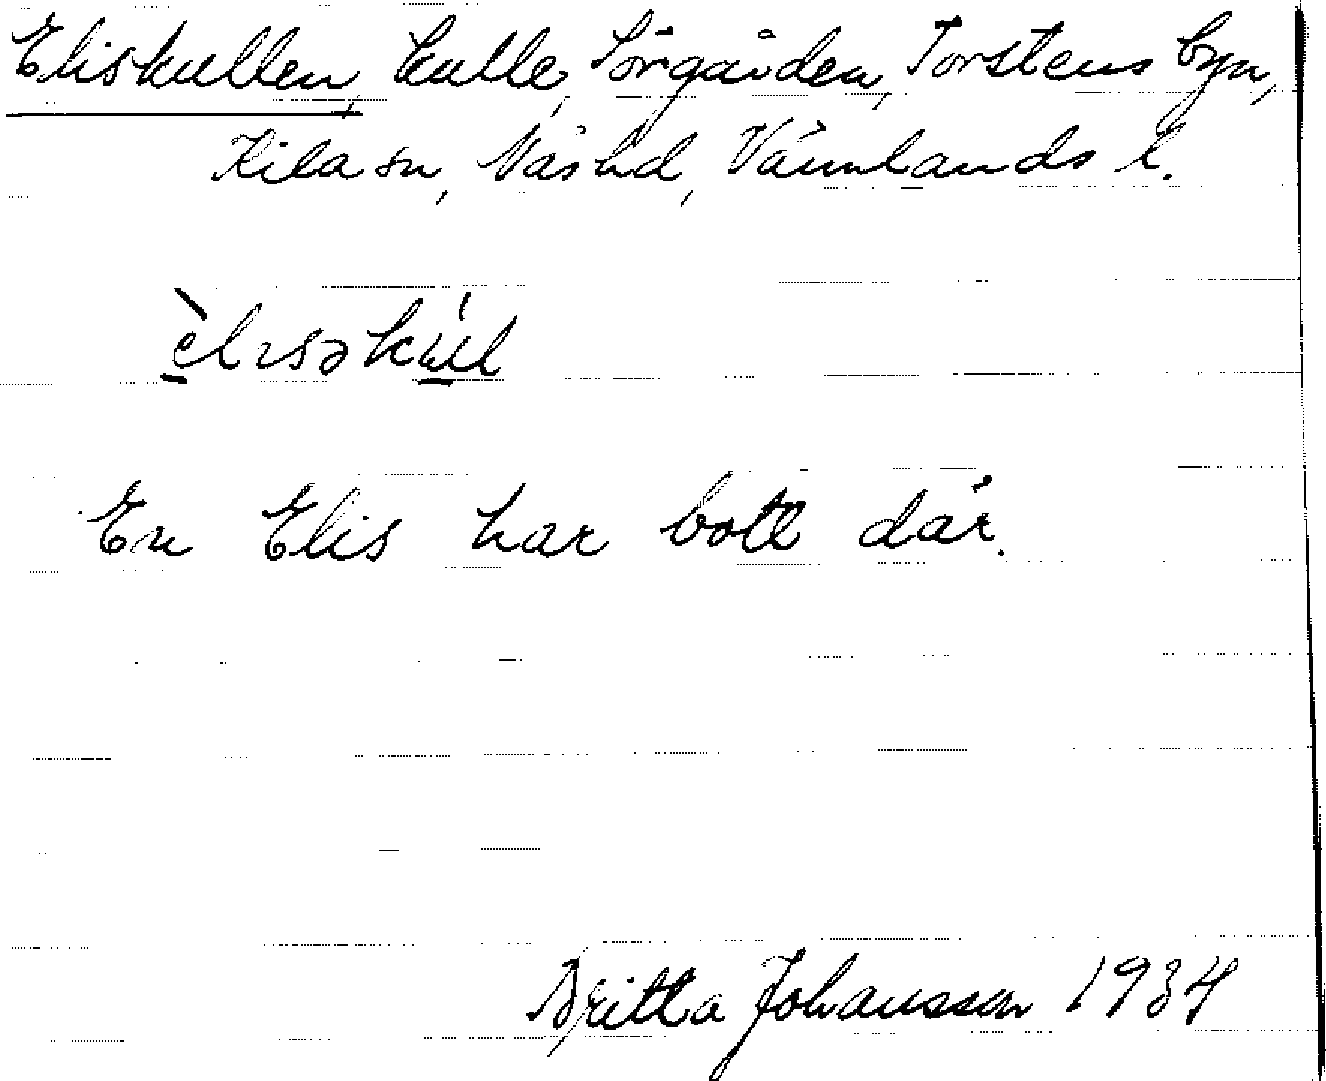 Eliskullen, kulle, Sörgården, Torstensbyn,
Kila sn, Näs hd, Värmlands l.
èlısəkúl
En Elis har bott där.
Britta Johansson 1934